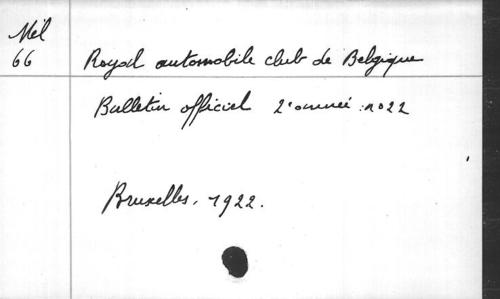 Mél
66
Royal automobile club de Belgique
Bulletin officiel 2e année: no 22
Bruxelles, 1922.